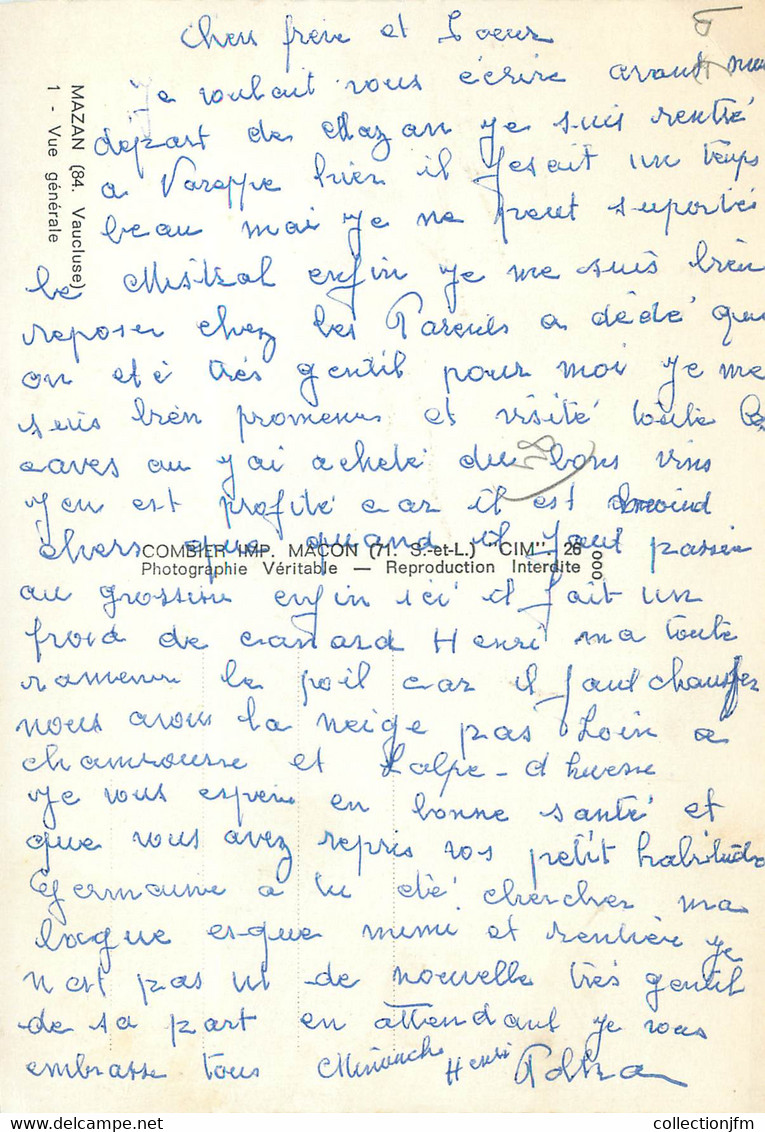 Chers frère et Soeur
Je voulait vous écrire avant mon
départ de Mazan je suis rentré
a Voreppe hier il fesait un temps
beau mai je ne peut suporter
le Mistral enfin je me suis bien
reposer chez les Parents a dédé qui
on eté trés gentil pour moi je me
suis bien promener et visité toute les
caves au j'ai acheté du bons vins
j'en est profité car il est moind
chers que quand il faut passer
au grossiste enfin ici il fait un
froid de canard Henri ma toute
ramener le poil car il faut chauffer
nous avons la neige pas loin a
chamrousse et Lalpe-d huesse
Je vous espère en bonne santé et
que vous avez repris vos petit habitude
Germaine a tu été chercher ma
bague es-que mimi et rentrée je
n est pas ut de nouvelle très gentil
de sa part en attendant je vous
embrasse tous Minouche Henri
MAZAN (84. Vaucluse)
1 - Vue générale
COMBIER IMP. MACON (71. S.-et-L.) "CIM". 26 000
Photographie Véritable — Reproduction Interdite
collectionjfm